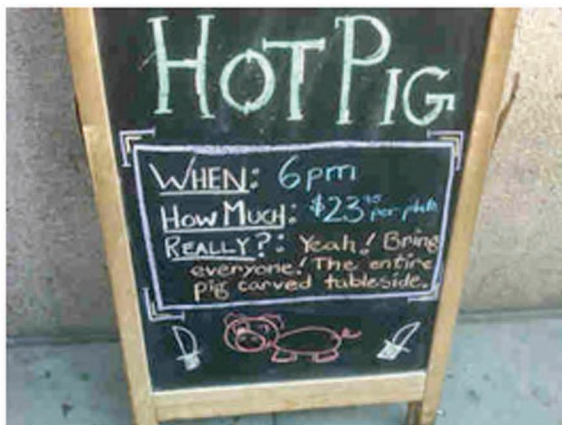 HOT PIG
WHEN: 6pm
HOW MUCH: $23 per plate
REALLY?: Yeah! Bring
everyone! The entire
pig carved tableside.